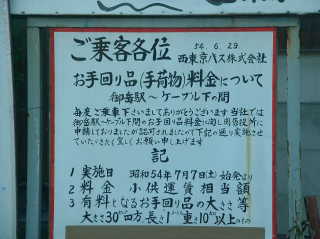 ご乗客各位
54.6.29
西東京バス株式会社
お手回り品(手荷物)料金について
御岳駅〜ケーブル下の間
毎度ご乗車下さいましてありがとうございます 当社では
御岳駅〜ケーブル下間のお手回り品料金に関し関係役所に
申請しておりましたが認可されましたので下記の通り実施させ
ていただきたく宜しくお願い申し上げます
記
1 実施日 昭和54年7月7日(土)始発より
2 料金 小供運賃相当額
3 有料となるお手回り品の大きさ等
大きさ30cm四方、長さ1m、重さ10kg以上のもの